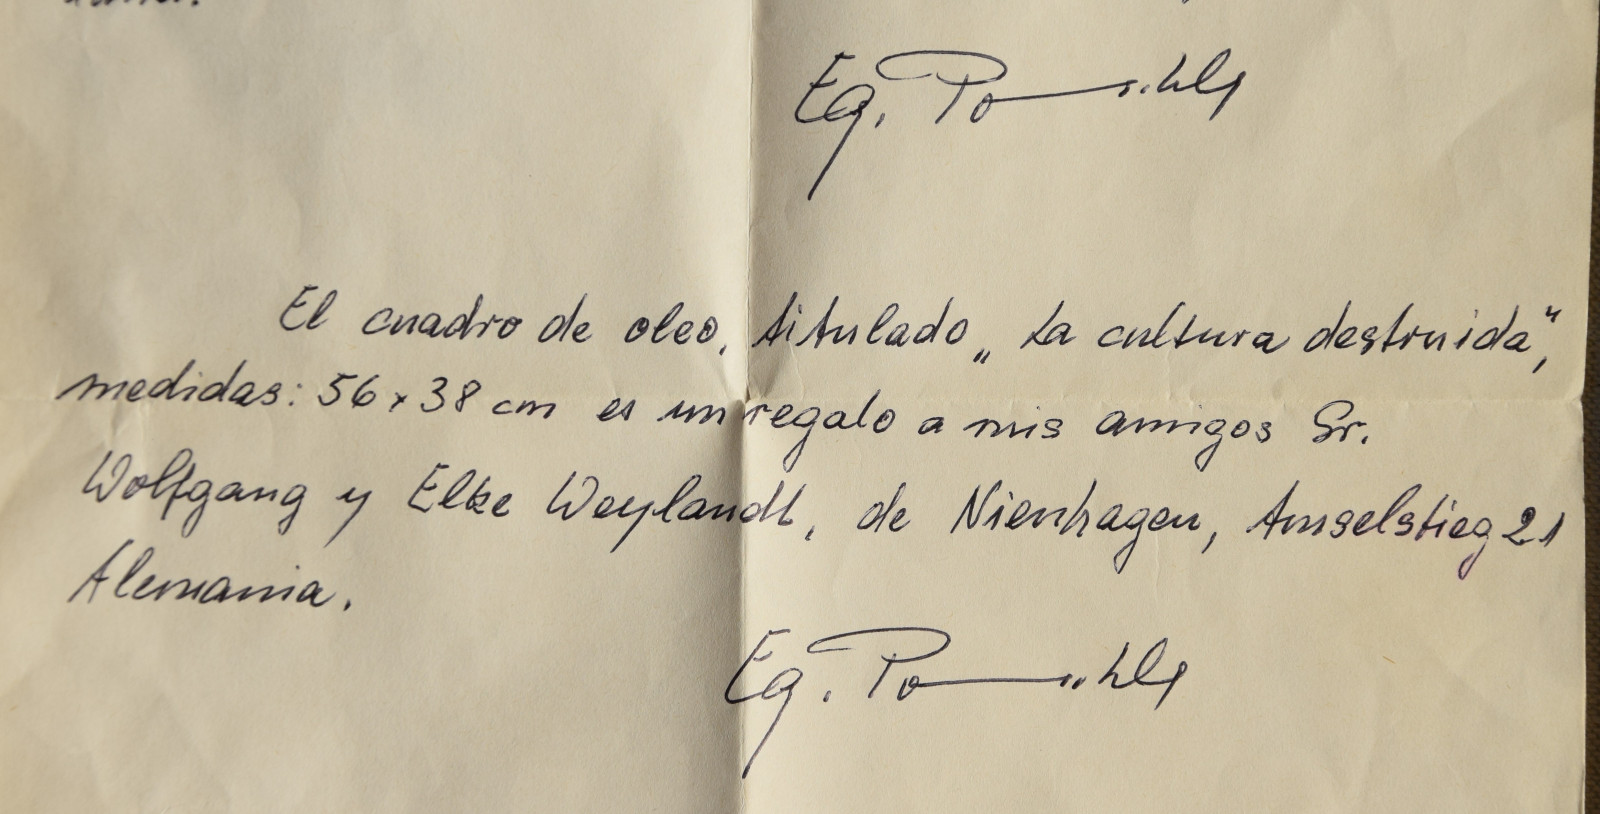 Eg.
El cuadro de oleo, titulado „La cultura destruida“,
medidas: 56 x 38 cm es un regalo a mis amigos Sr.
Wolfgang y Elke Weylandt, de Nienhagen, Amselstieg 21
Alemania.
Eg.